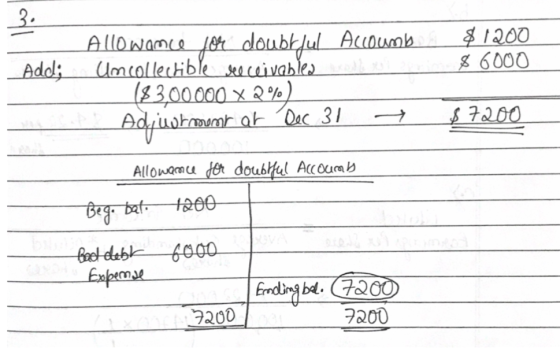 3.
Allowance for doubtful Accounts $ 1200
Add; Uncollectible receivables $ 6000
($3,00000 x 2%)
Adjustment at Dec 31 → $ 7200
Allowance for doubtful Accounts
Beg. bal. 1200
Bad debt 6000
Expense
Ending bal. 7200
7200 7200